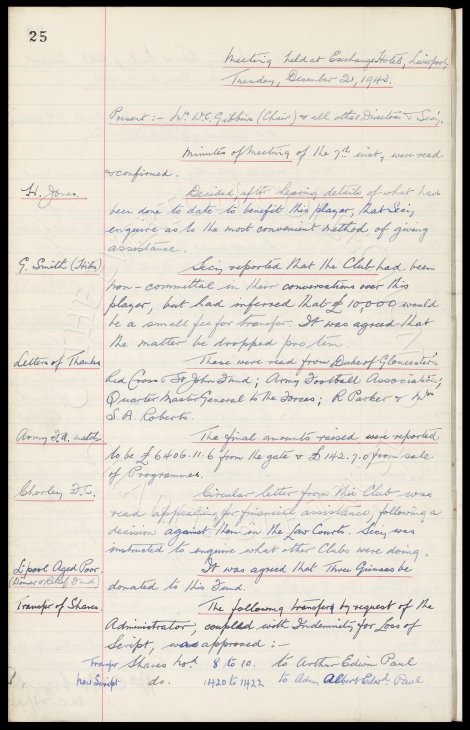 25
Meeting held at Exchange Hotel, Liverpool,
Tuesday, December 21, 1943.
Present :- Mr W.C. Gibbins (Chair) & all other Directors & Secy.
Minutes of Meeting of the 7th inst, were read
& confirmed.
H. Jones. Decided, after hearing details of what had
been done to date to benefit this player, that Secy
enquire as to the most convenient method of giving
assistance.
G. Smith (Hibs) Secy reported that the Club had been
non-committal in their conversations over this
player, but had inferred that £10,000 would
be a small fee for transfer. It was agreed that
the matter be dropped pro tem.
Letters of Thanks These were read from Duke of Gloucester's
Red Cross & St John Fund; Army Football Association;
Quarter Master General to the Forces; R Parker & Mr
S. A. Roberts.
Army F.A. match The final amounts raised were reported
to be £6406.11.6 from the gate & £142.7.0 from sale
of Programmes.
Chorley F.C. Circular letter from this Club was
read appealing for financial assistance, following a
decision against them in the Law Courts. Secy was
instructed to enquire what other Clubs were doing.
L'pool Aged Poor It was agreed that Three Guineas be
(Dinner & Relief Fund donated to this Fund.
Transfer of Shares. The following transfers by request of the
Administrator, coupled with Indemnity for Loss of
Script, was approved :-
Transfer Shares nos 8 to 10. to Arthur Edwin Paul
New Script do. 1420 to 1422 to Admr Albert Edwd Paul.